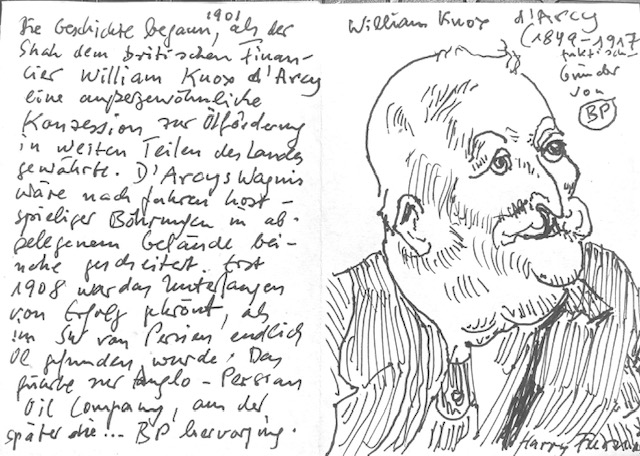 Die Geschichte begann, 1901, als der
Shah dem britischen Finan-
cier William Knox d'Arcy
eine außergewöhnliche
Konzession zur Ölförderung
in weiten Teilen des Landes
gewährte. D'Arcys Wagnis
wäre nach Jahren kost-
spieliger Bohrungen in ab-
gelegenem Gelände bei-
nahe gescheitert. Erst
1908 war das Unterfangen
von Erfolg gekrönt, als
im SW von Persien endlich
Öl gefunden wurde. Das
führte zur Anglo-Persian
Oil Company, aus der
später die... BP hervorging.
William Knox d'Arcy
(1849-1917
faktisch
Gründer
von
BP
Harry